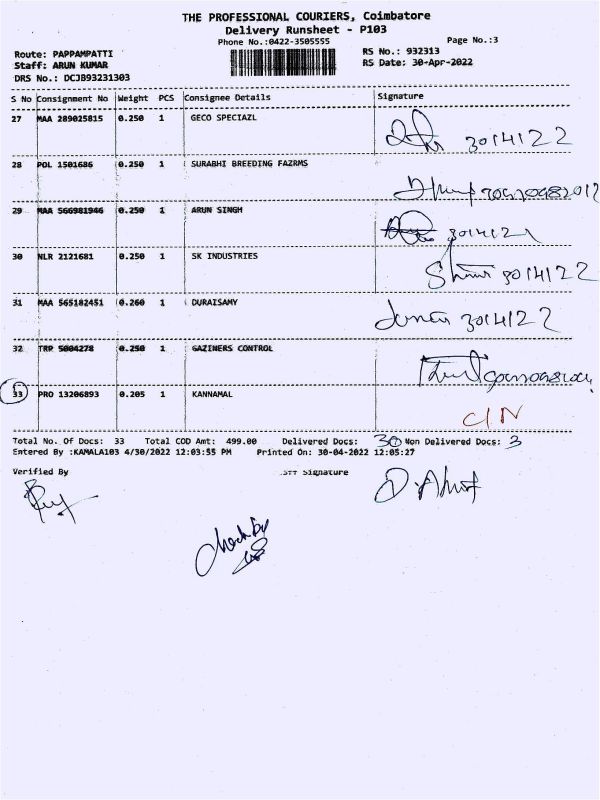 THE PROFESSIONAL COURIERS, Coimbatore
Delivery Runsheet - P103
Phone No.:0422-3505555 Page No.:3
Route: PAPPAMPATTI RS No.: 932313
Staff: ARUN KUMAR RS Date: 30-Apr-2022
DRS No.: DCJB93231303
S No Consignment No Weight PCS Consignee Details Signature
27 MAA 289025815 0.250 1 GECO SPECIAZL
30/4/22
28 POL 1501686 0.250 1 SURABHI BREEDING FAZRMS
29 MAA 566981946 0.250 1 ARUN SINGH
30/4/22
30 NLR 2121681 0.250 1 SK INDUSTRIES
30/4/22
31 MAA 565182451 0.260 1 DURAISAMY
30/4/22
32 TRP 5004278 0.250 1 GAZINERS CONTROL
33 PRO 13206893 0.205 1 KANNAMAL
C/N
Total No. Of Docs: 33 Total COD Amt: 499.00 Delivered Docs: 30 Non Delivered Docs: 3
Entered By :KAMALA103 4/30/2022 12:03:55 PM Printed On: 30-04-2022 12:05:27
Verified By Signature